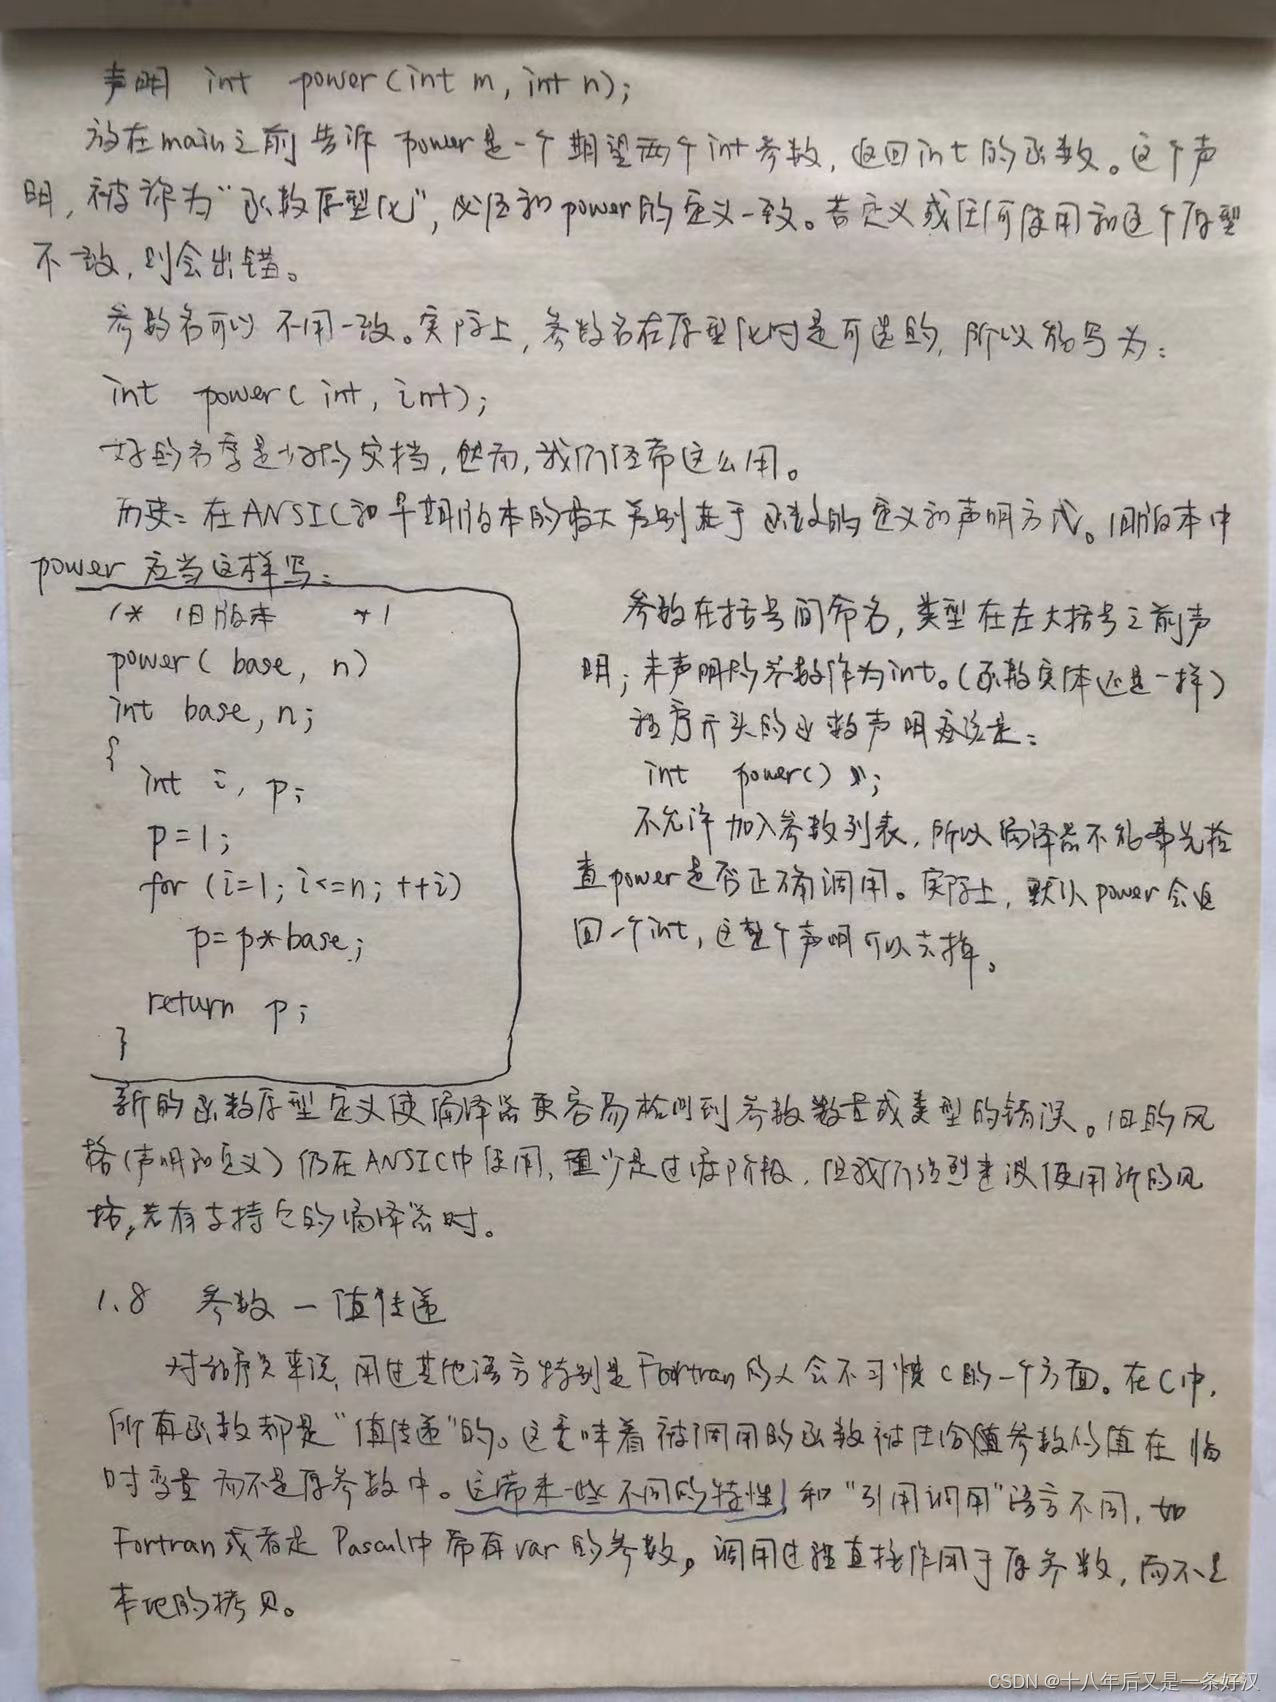 声明 int power(int m, int n);
放在main之前告诉 power是一个期望两个int参数,返回int的函数。这个声
明,被称为“函数原型化”,必须和power的定义一致。若定义或任何使用和这个原型
不一致,则会出错。
参数名可以不用一致。实际上,参数名在原型化时是可选的,所以能写为:
int power( int, int);
好的名字是好的文档,然而,我们经常这么用。
历史:在ANSIC和早期版本的最大差别在于函数的定义和声明方式。旧版本中
power 应当这样写:
/* 旧版本 */
power( base, n)
int base, n;
{
int i, p;
p=1;
for (i=1; i<=n; ++i)
p=p*base;
return p;
}
参数在括号间命名,类型在左大括号之前声
明;未声明的参数作为int。(函数实体还是一样)
程序开头的函数声明应该是:
int power();
不允许加入参数列表,所以编译器不能事先检
查power是否正确调用。实际上,默认power会返
回一个int,这整个声明可以去掉。
新的函数原型定义使编译器更容易检测到参数数量或类型的错误。旧的风
格(声明和定义)仍在ANSIC中使用,至少是过渡阶段,但我们强烈建议使用新的风
格,若有支持它的编译器时。
1.8 参数—值传递
对程序员来说,用过其他语言特别是Fortran的人会不习惯C的一个方面。在C中,
所有函数都是“值传递”的。这意味着被调用的函数被传给参数的值在临
时变量而不是原参数中。这带来一些不同的特性,和“引用调用”语言不同,如
Fortran或者是Pascal中带有var的参数,调用过程直接作用于原参数,而不是
本地的拷贝。
CSDN @十八年后又是一条好汉